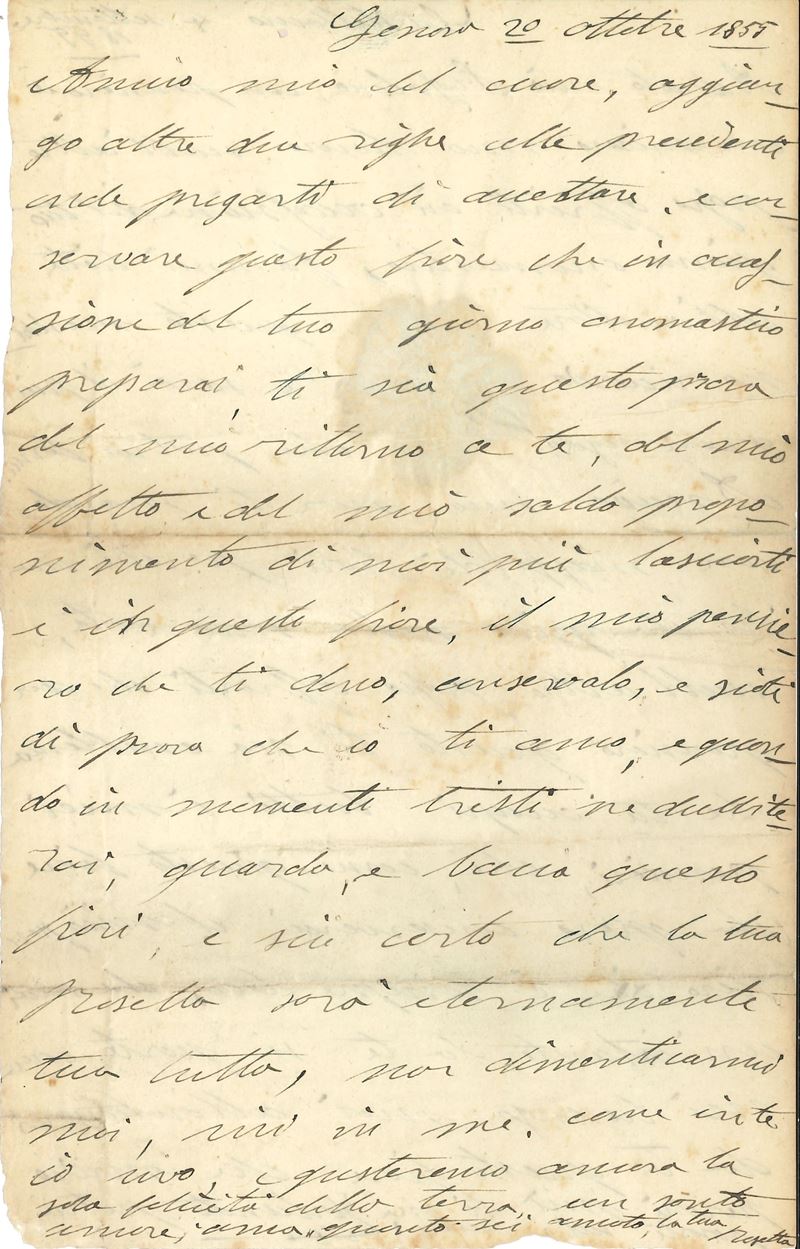 Genova 20 ottobre 1855
Amico mio del cuore, aggiun-
go altre due righe alle precedenti
onde pregarti di accettare, e con-
servare questo fiore che in occa-
sione del tuo giorno onomastico
preparai, ti sia questo prova
del mio ritorno a te, del mio
affetto e del mio saldo propo-
nimento di mai più lasciarti
è in questo fiore, il mio pensie-
ro che ti dono, conservalo, e sieti
di prova che io ti amo, e quan-
do in momenti tristi ne dubite-
rai, guarda, e bacia questo
fiori, e sii certo che la tua
Rosetta sarà eternamente
tua tutta, non dimenticarmi
mai, vivi in me, come in te
io vivo, e gusteremo ancora la
sola felicità della terra, un santo
amore, ama quanto sei amato, la tua Rosetta